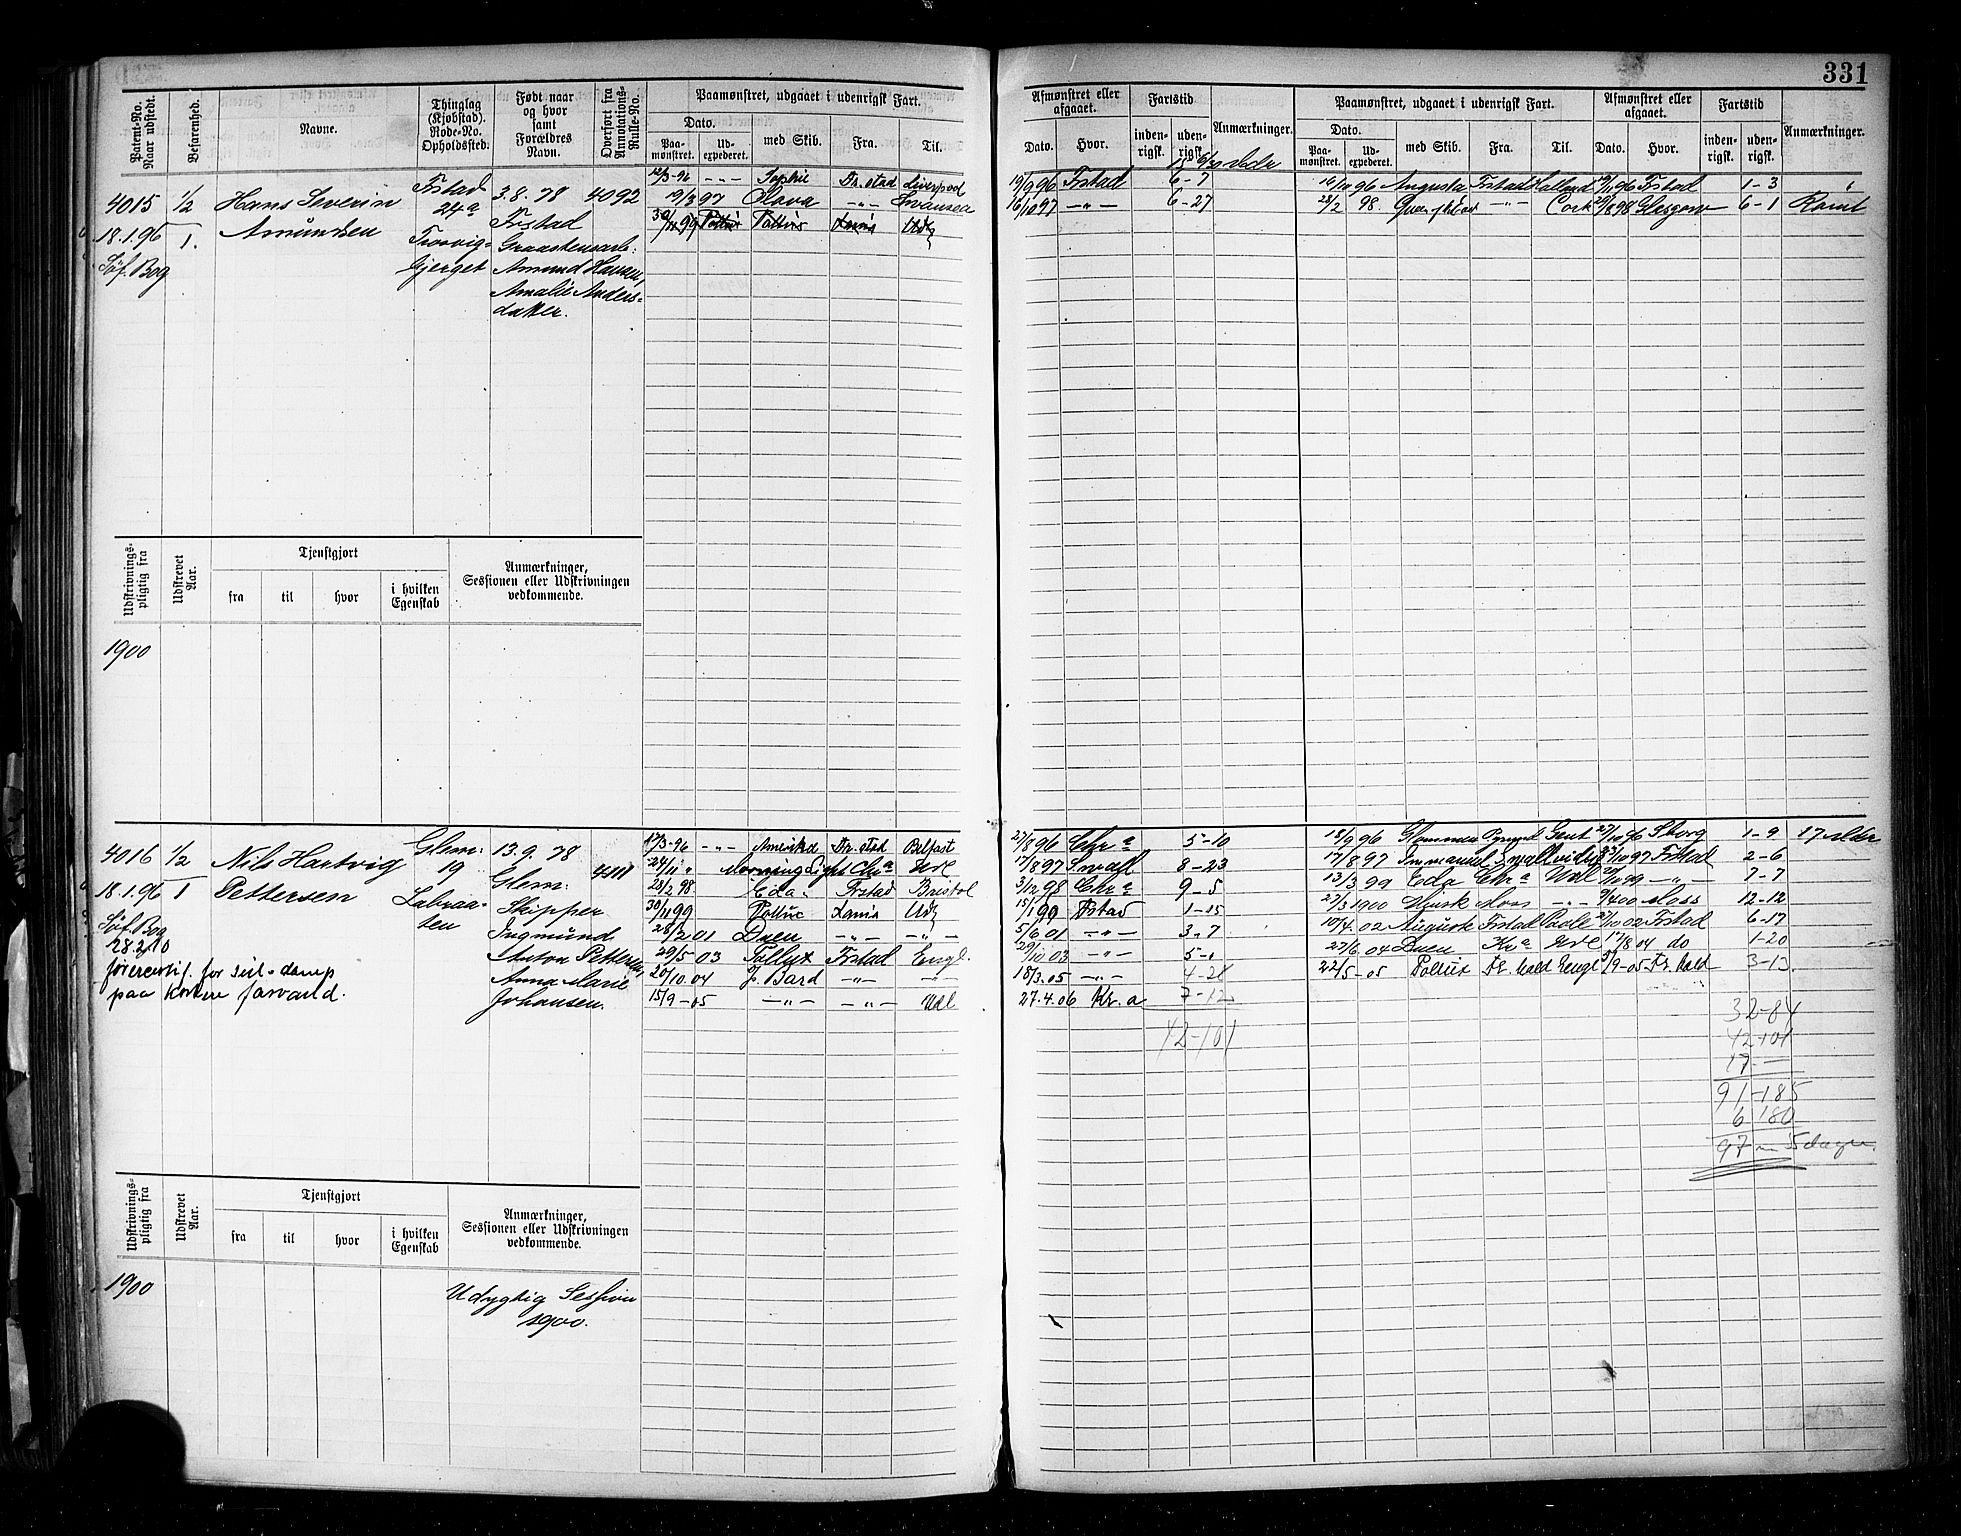 331
Patent-No. Naar udstedt.
Befarenhed.
Navne.
Thinglag (Kjøbstad). Rode-No. Opholdssted.
Født naar og hvor samt Forældres Navn.
Overført fra Annotations-Rulle-No.
Paamønstret, udgaaet i udenrigsk Fart.
Dato.
Paamønstret.
Udexpederet.
med Skib.
Fra.
Til.
Afmønstret eller afgaaet.
Dato.
Hvor.
Fartstid
indenrigsk.
udenrigsk.
Anmærkninger.
Paamønstret, udgaaet i udenrigsk Fart.
Dato.
Paamønstret.
Udexpederet.
med Skib.
Fra.
Til.
Afmønstret eller afgaaet.
Dato.
Hvor.
Fartstid
indenrigsk.
udenrigsk.
Anmærkninger.
4015 1/2 Hans Severin Fstad 3.8.78 4092
18.1.96 I. Amundsen 24a Frstad
Søf. Bog Trosvig- Graastensarb:
bjerget Amund Hansen,
Amalie Anders-
datter.
12/3-96 -"- Sophie Fr.stad Liverpool 19/9 96 Fstad 6-7
19/3 97 Olava -"- Svansea 16/10 97 -"- 6-27
30/11 99 Pollux Pollux Lauis Udl
14/10 96 Augusta Frstad Holland 19/11 96 Fstad 1-3
28/2 98. -"- Cork 29/8 98 Glasgow 6-1 Rømt
Udskrivningspligtig fra
Udskrevet Aar.
Tjenstgjort
fra
til
hvor
i hvilken Egenskab
Anmærkninger, Sessionen eller Udskrivningen vedkommende.
1900
4016 1/2 Nils Hartvig Glem: 13.9.78 4111
18.1.96 I Pettersen 19 Glem:
Søf. Bog Labraa- Skipper
28 2 10 ten Ingmund
førercertif. for seil-damp Anton Pettersen,
paa kortere farvand. Anna Marie
Johansen.
17/3-96 -"- Amerika Fr.stad Belfast 27/8 96 Chra 5-10
24/11 " Morning Light Chra 17/8 97 8-23
28/2 98 Eda Frstad Bristol 3/12 98 Chra 9-5
30/11 99 Pollux Lauis Udl 15/1 99 Fstad 1-15
28/2 01 Duen -"- -"- 5/6 01 -"- 3-7
20/5 03 Pollyx Frstad Engl. 29/10 03 -"-
20/10 04 J. Bard -"- 18/3.05 -"- 4-28
15/9-05 -"- -"- Udl 27.4.06 Kr.a 7-12
42-101
18/9 96 Glommen Gent 27/10 96 Sborg 1-9 17 alder
17/8 97 Immanuel 10 97 Frstad 2-6
13/3 99 Eda Chra Udl 99 -"- 7-7
27/3 1900 Moss -"- 9/4 00 Moss 12-12
10/4.02 Auguste Frstad 27/10 02 Frstad 6-17
27/6.04 Duen Kra 17/8 04 do 1-20
22/5-05 Pollux Fr. hald Engl 9-05 Fr. hald 3-13
32-84
42-101
17-
91-185
6 180
97 - 5 dage
Udskrivningspligtig fra
Udskrevet Aar.
Tjenstgjort
fra
til
hvor
i hvilken Egenskab
Anmærkninger, Sessionen eller Udskrivningen vedkommende.
1900 Udygtig Session
1900.